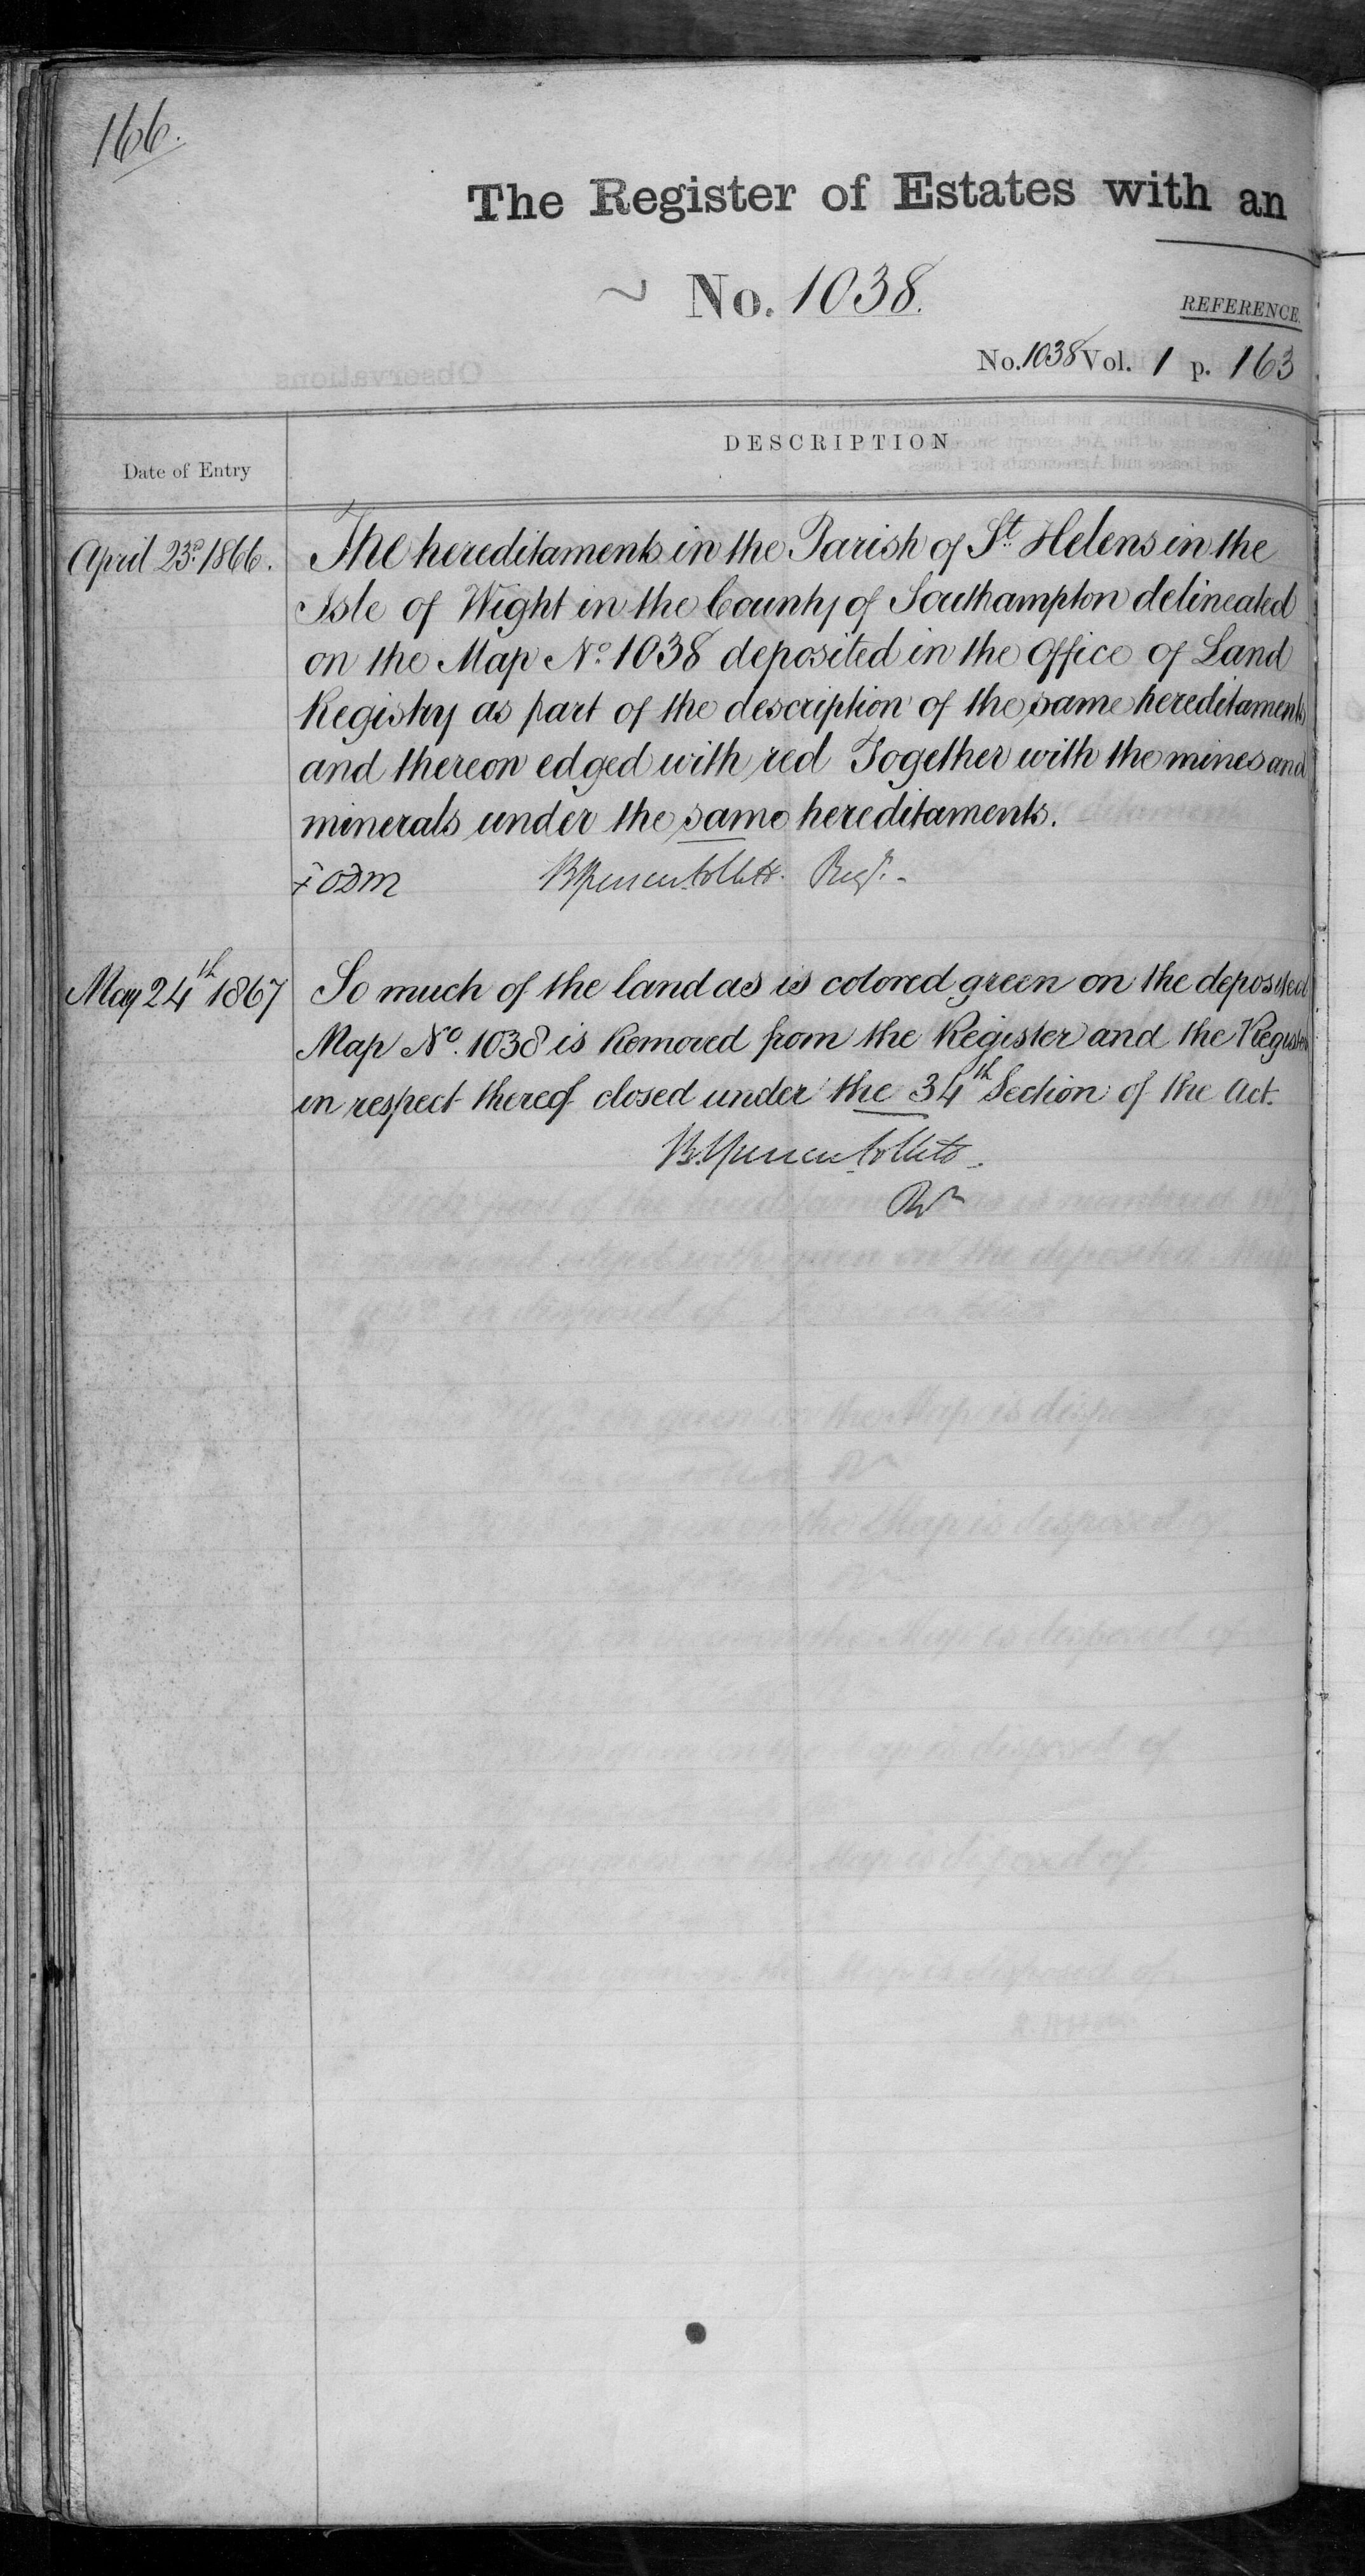 166.
The Register of Estates with an
No. 1038.
REFERENCE.
No. 1038 Vol. 1 p. 163
Observations
DESCRIPTION
Date of Entry
April 23d. 1866.
The hereditaments in the Parish of St. Helens in the
Isle of Wight in the County of Southampton delineated
on the Map No. 1038 deposited in the Office of Land
Registry as part of the description of the same hereditaments
and thereon edged with red Together with the mines and
minerals under the same hereditaments.
Regr.
May 24th 1867
So much of the land as is colored green on the deposited
Map No. 1038 is Removed from the Register and the Register
in respect thereof closed under the 34th Section of the Act.